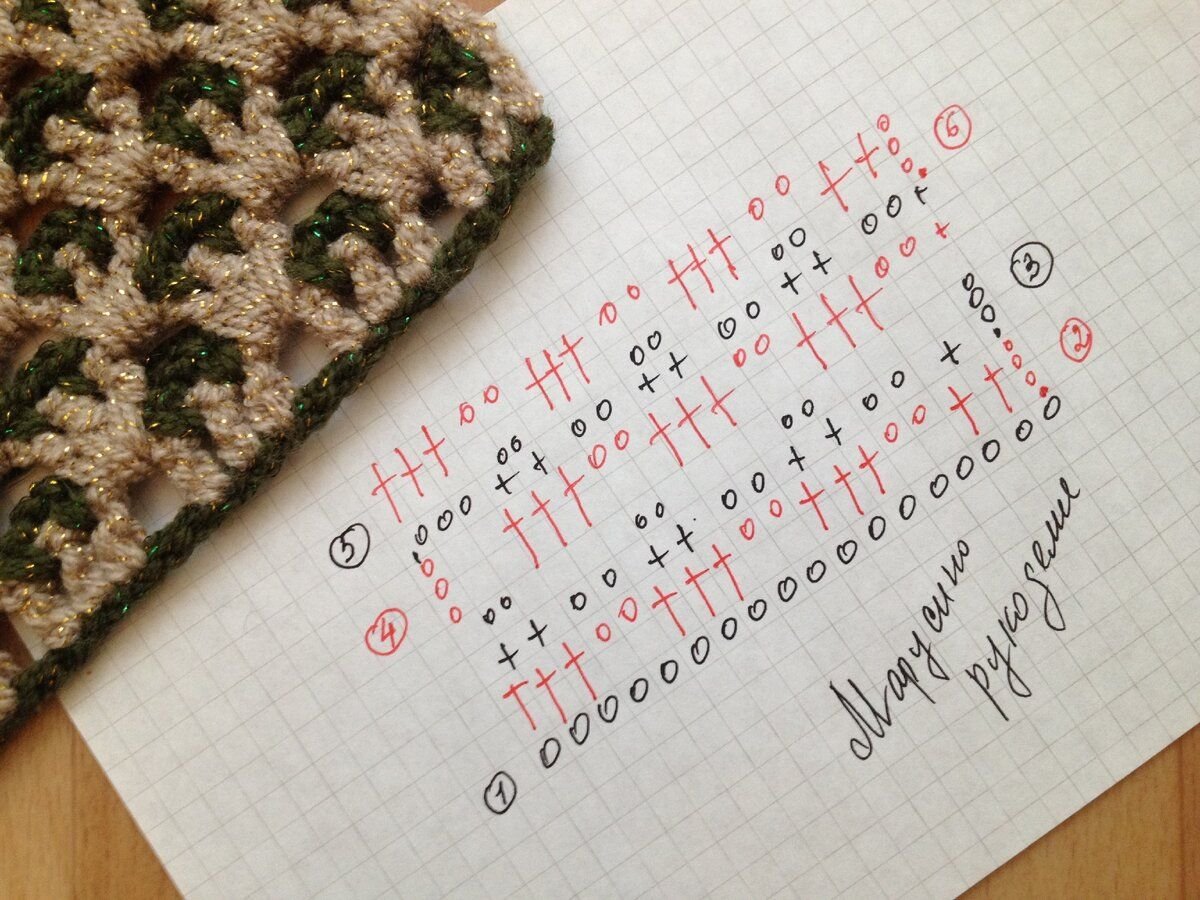 6
3
2
5
4
1
Марусино
рукоделие